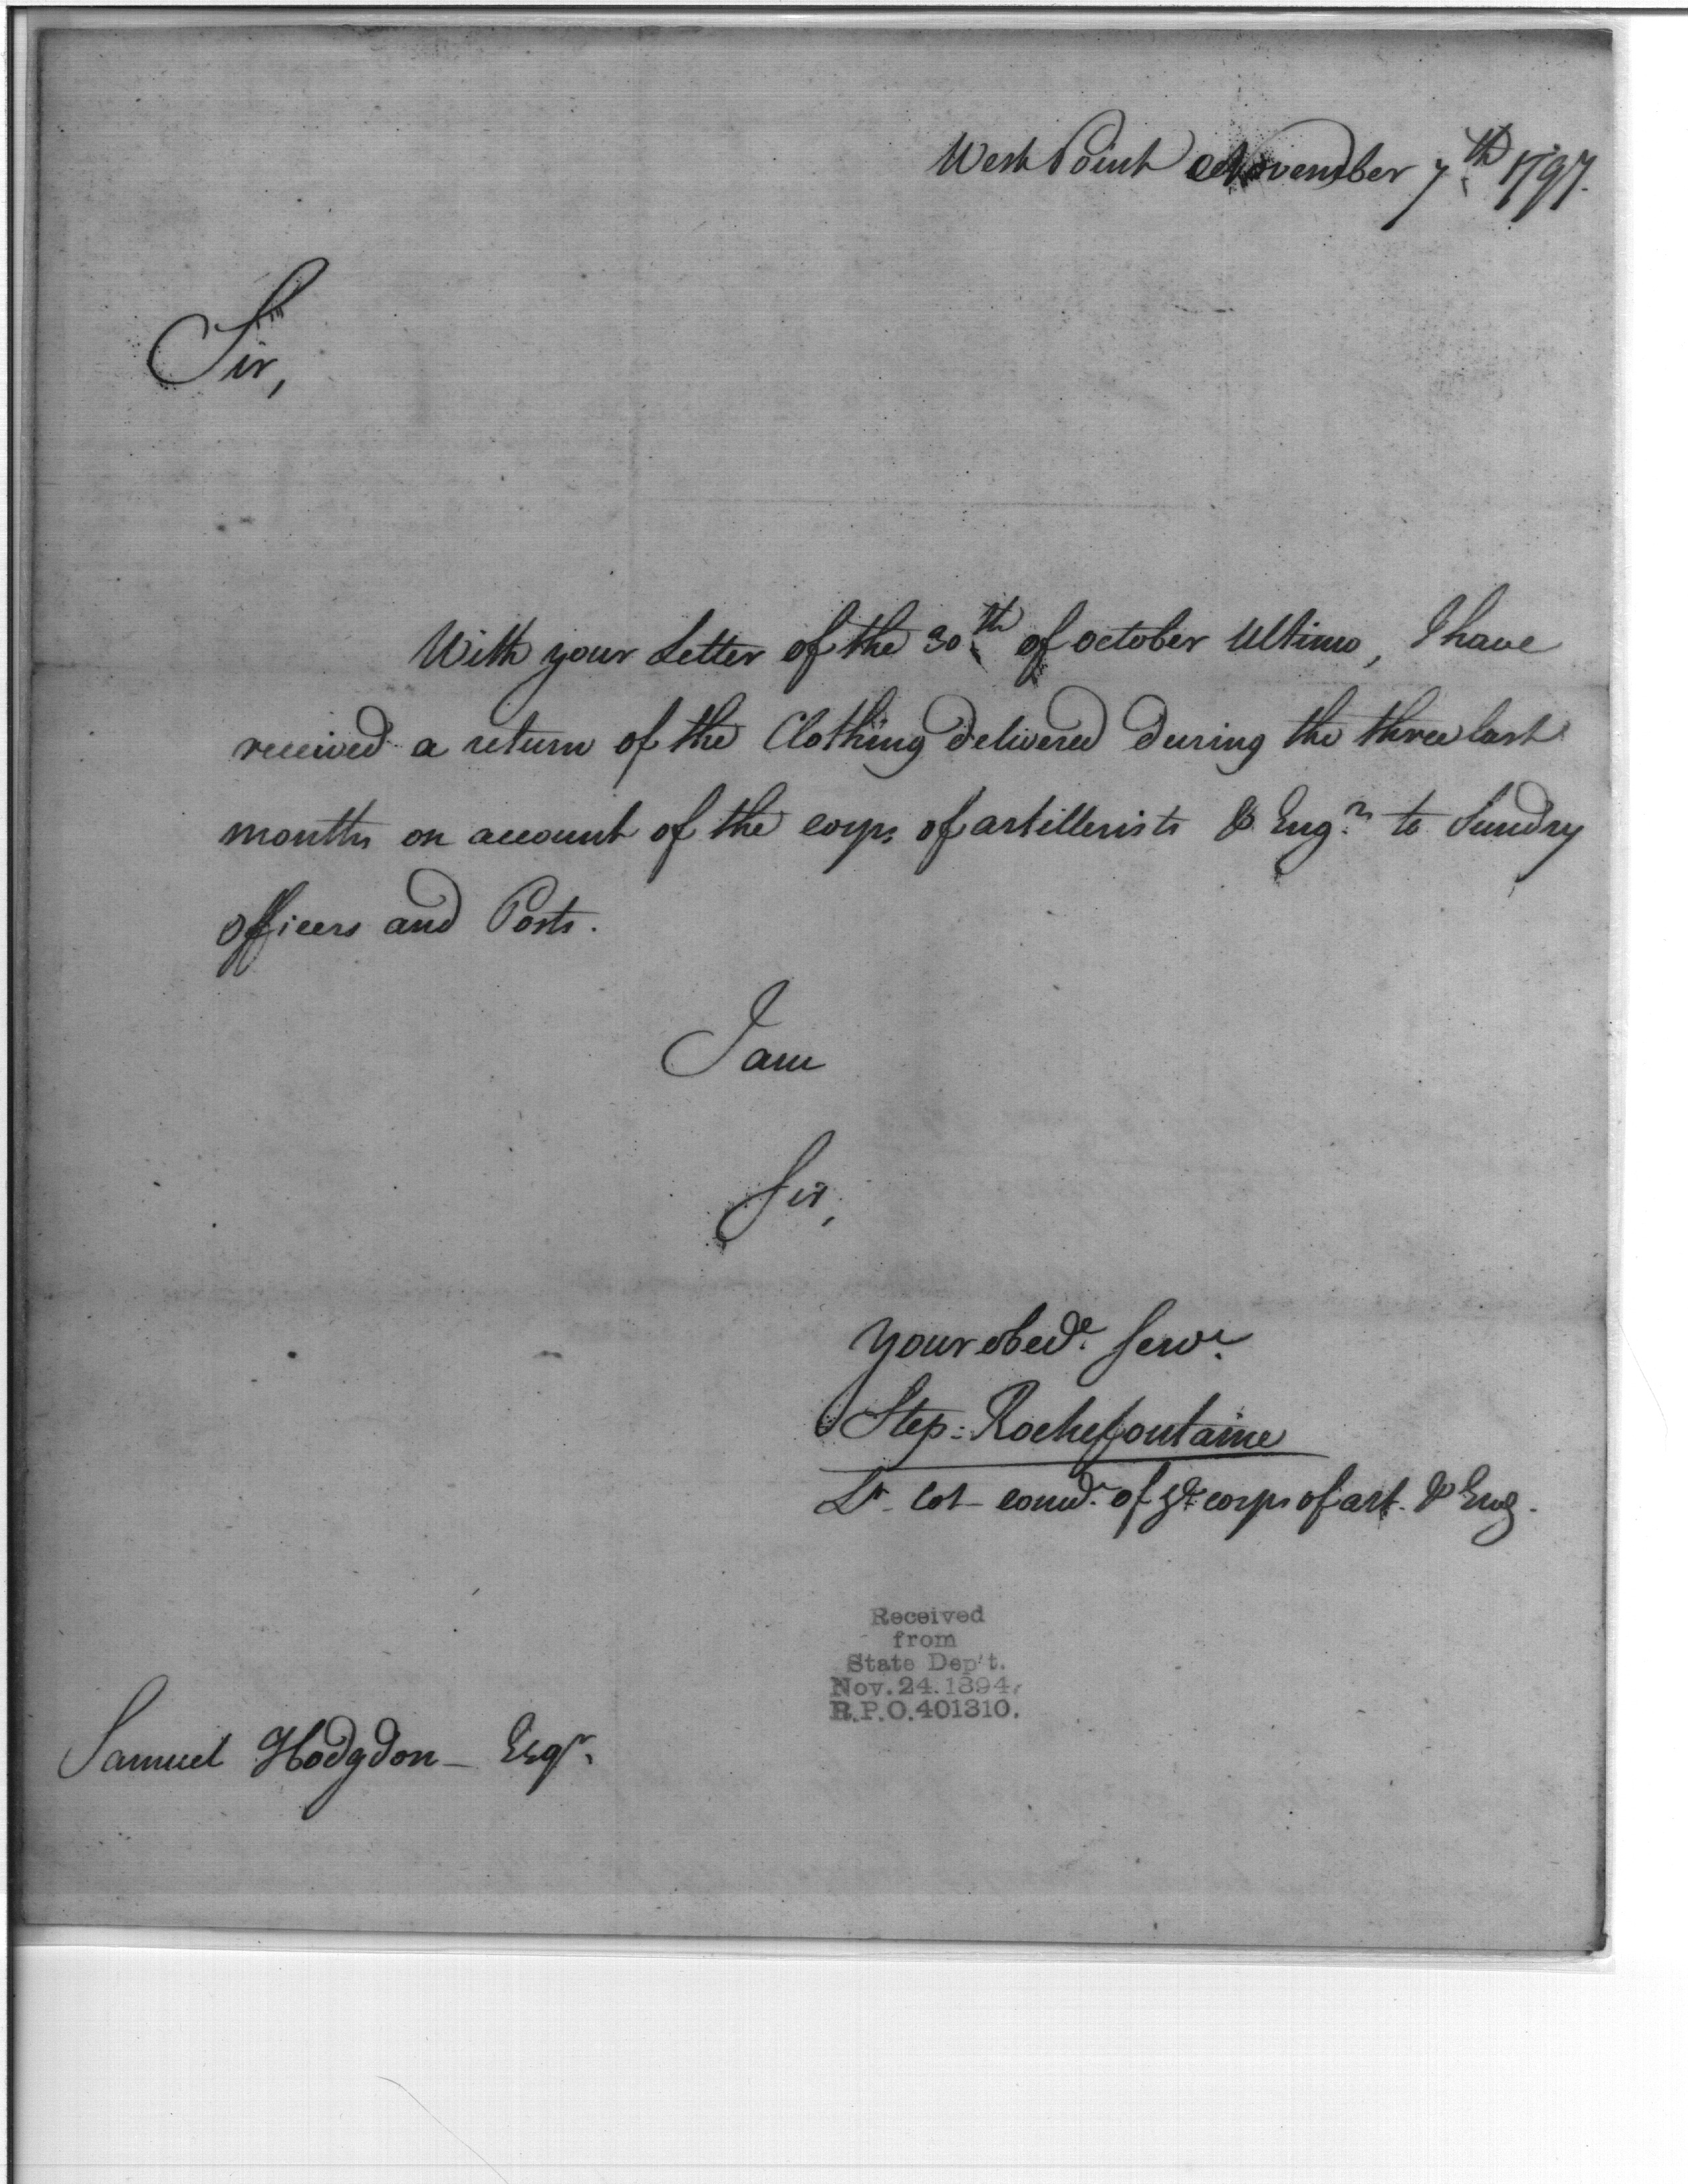 West Point November 7th 1797.
Sir,
With your Letter of the 30th of october Ultimo, I have
received a return of the Clothing delivered during the three last
months on account of the corps of artillerists & Engrs to Sundry
officers and Posts.
I am
Sir,
your obedt Servt
Step: Rochefontaine
Lt Col comdt of corps of art. & Eng.
Received
from
State Dep't.
Nov. 24. 1894,
R.P.O. 401310.
Samuel Hodgdon - Esqr.